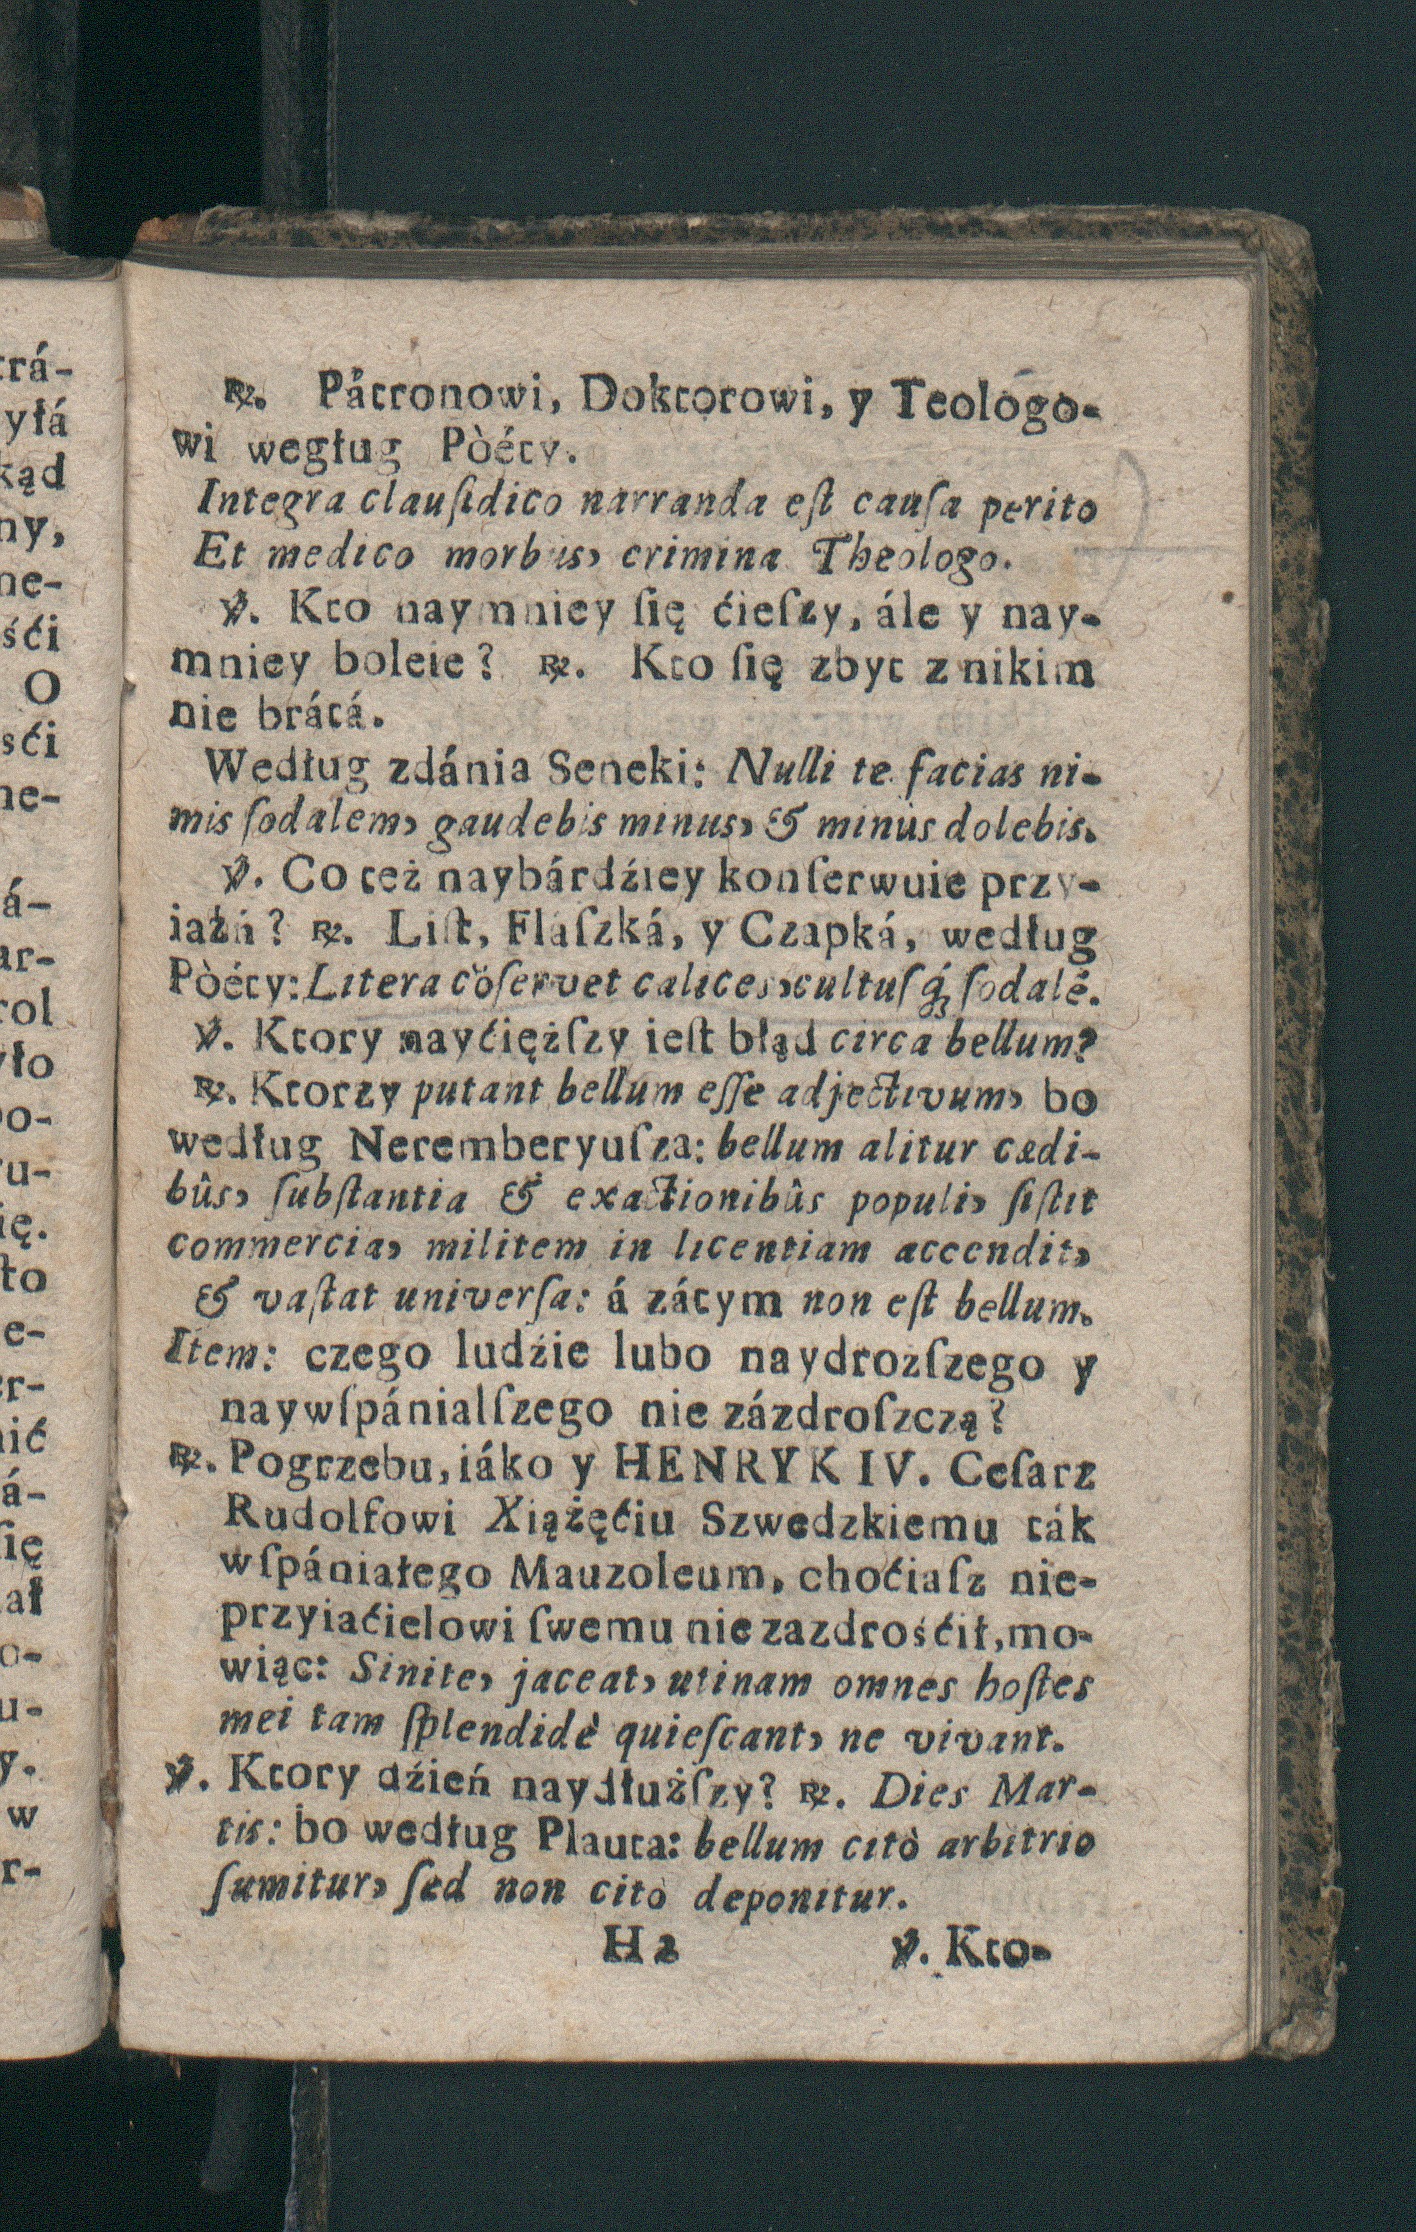 ℟. Pátronowi, Doktorowi, y Teologo-
wi wegług Pòéty.
Integra clauſidico narranda eſt cauſa perito
Et medico morbus, crimina Theologo.
℣. Kto naymniey ſię ćieſzy, ále y nay-
mniey boleie? ℟. Kto ſię zbyt z nikim
nie brátá.
Według zdánia Seneki: Nulli te facias ni-
mis ſodalem, gaudebis minus, & minùs dolebis.
℣. Co też naybárdźiey konſerwuie przy-
iaźń? ℟. Liſt, Flaſzká, y Czapká, według
Pòéty: Litera cõſervet calices, cultuſq́; ſodalẽ.
℣. Ktory nayćięższy ieſt błąd circa bellum?
℟. Ktorzy putant bellum eſſe adjectivum, bo
według Neremberyuſza: bellum alitur cædi-
bûs, ſubſtantia & exactionibûs populi, ſiſtit
commercia, militem in licentiam accendit,
& vaſtat univerſa: á zátym non eſt bellum.
Item: czego ludźie lubo naydrożſzego y
naywſpánialſzego nie zázdroſzczą?
℟. Pogrzebu, iáko y HENRYK IV. Ceſarz
Rudolfowi Xiążęćiu Szwedzkiemu ták
wſpániałego Mauzoleum, choćiaſz nie-
przyiaćielowi ſwemu nie zazdrośćił, mo-
wiąc: Sinite, jaceat, utinam omnes hoſtes
mei tam ſplendidè quieſcant, ne vivant.
℣. Ktory dźień naydłużſzy? ℟. Dies Mar-
tis: bo według Plauta: bellum citò arbitrio
ſumitur, ſed non citò deponitur.
H2 ℣. Kto-
trá-
yłá
kąd
ny,
ne-
śći
O
sći
ne-
á-
ar-
rol
yło
po-
ru-
ię.
to
e-
er-
nić
á-
ſię
ał
o-
u-
y.
w
r-